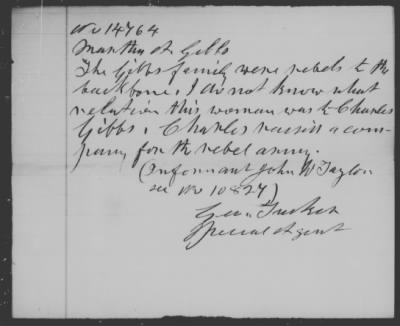 No 14764
Martha A Gibbs
The Gibbs family were rebels to the
backbone. I do not know what
relation this woman was to Charles
Gibbs. Charles raisin a com-
pany for the rebel army.
(Informant John W Taylor
see No 10827)
Geo. Tucker
Special Agent